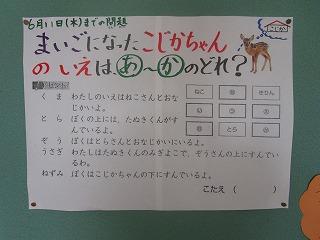 6月11日(木)までの問題
まいごになったこじかちゃん
の いえは、あ〜かのどれ?
こじか
ヒント
くま わたしのいえはねこさんとおな
じかいよ。
とら ぼくの上には、たぬきくんがす
んでいるよ。
ぞう ぼくはとらさんとおなじかいにいるよ。
うさぎ わたしはたぬきくんのみぎよこで、ぞうさんの上にすんでいる
わ。
ねずみ ぼくはこじかちゃんの下にすんでいるよ。
ねこ きりん
とら
こたえ ( )